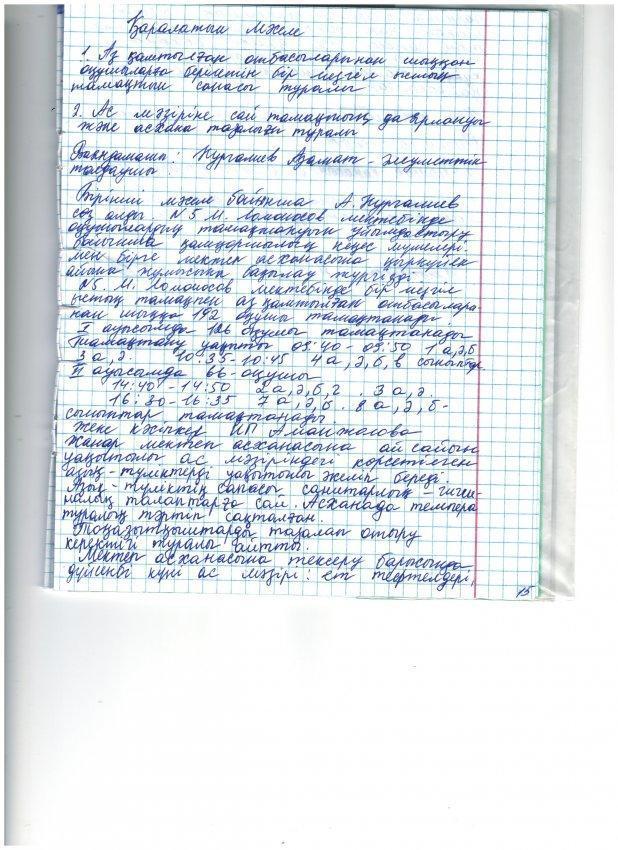 Қаралатын мәселе
1. Аз қамтылған отбасыларынан шыққан
оқушыларға берілетін бір мезгіл ыстық
тамақтың сапасы туралы
2. Ас мәзіріне сай тамақтың даярлануы
және асхана тазалығы туралы
Баяндамашы: Нургалиев Азамат - әлеуметтік
талдаушы.
Бірінші мәселе бойынша А. Нургалиев
сөз алды. №5 М. Ломоносов мектебінде
оқушылардың тамақтануын ұйымдастыру
бойынша қамқоршылық кеңес мүшелері
мен бірге мектеп асханасына қыркүйек
айына жұмысына бақылау жүргізді
№5 М. Ломоносов мектебінде бір мезгіл
ыстық тамақпен аз қамтылған отбасылары-
нан шыққан 192 оқушы тамақтанады.
I ауысымда 126 оқушы тамақтанады
Тамақтану уақыты 09:40-09:50 1а,ә,б
3а,ә. 10:35-10:45 4а,ә,б,в сыныптар.
II ауысымда 66-оқушы
14:40-14:50 2а,ә,б,г. 3а,ә.
16:30-16:35 7а,ә,б. 8а,ә,б-
сыныптар тамақтанады.
Жеке кәсіпкер ИП Аманжолова
Жанар мектеп асханасына ай сайын
уақытылы ас мәзіріндегі көрсетілген
азық-түліктерді уақытылы әкеліп береді.
Азық-түліктің сапасы санитарлық-гигие-
налық талаптарға сай. Асханада темпера
туралық тәртіп сақталған.
Тоңазытқыштарды тазалап отыру
керектігі туралы айтты.
Мектеп асханасына тексеру барысында
дүйсенбі күні ас мәзірі: ет тефтелдері,
15